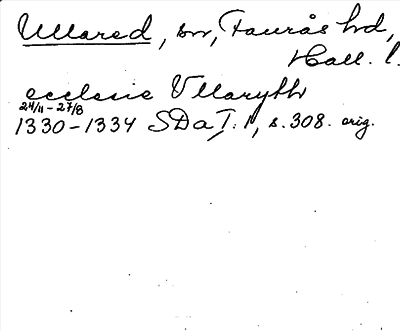 Ullared, sn, Faurås hd,
Hall. l.
ecclesie Vllaryth
24/11 - 27/8
1330-1334 SDaT: 1, s. 308. orig.